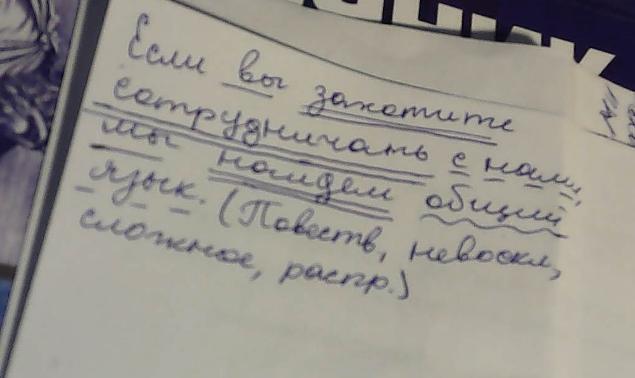 Если вы захотите
сотрудничать с нами,
мы найдем общий
язык. (Повеств, невоскл,
сложное, распр.)